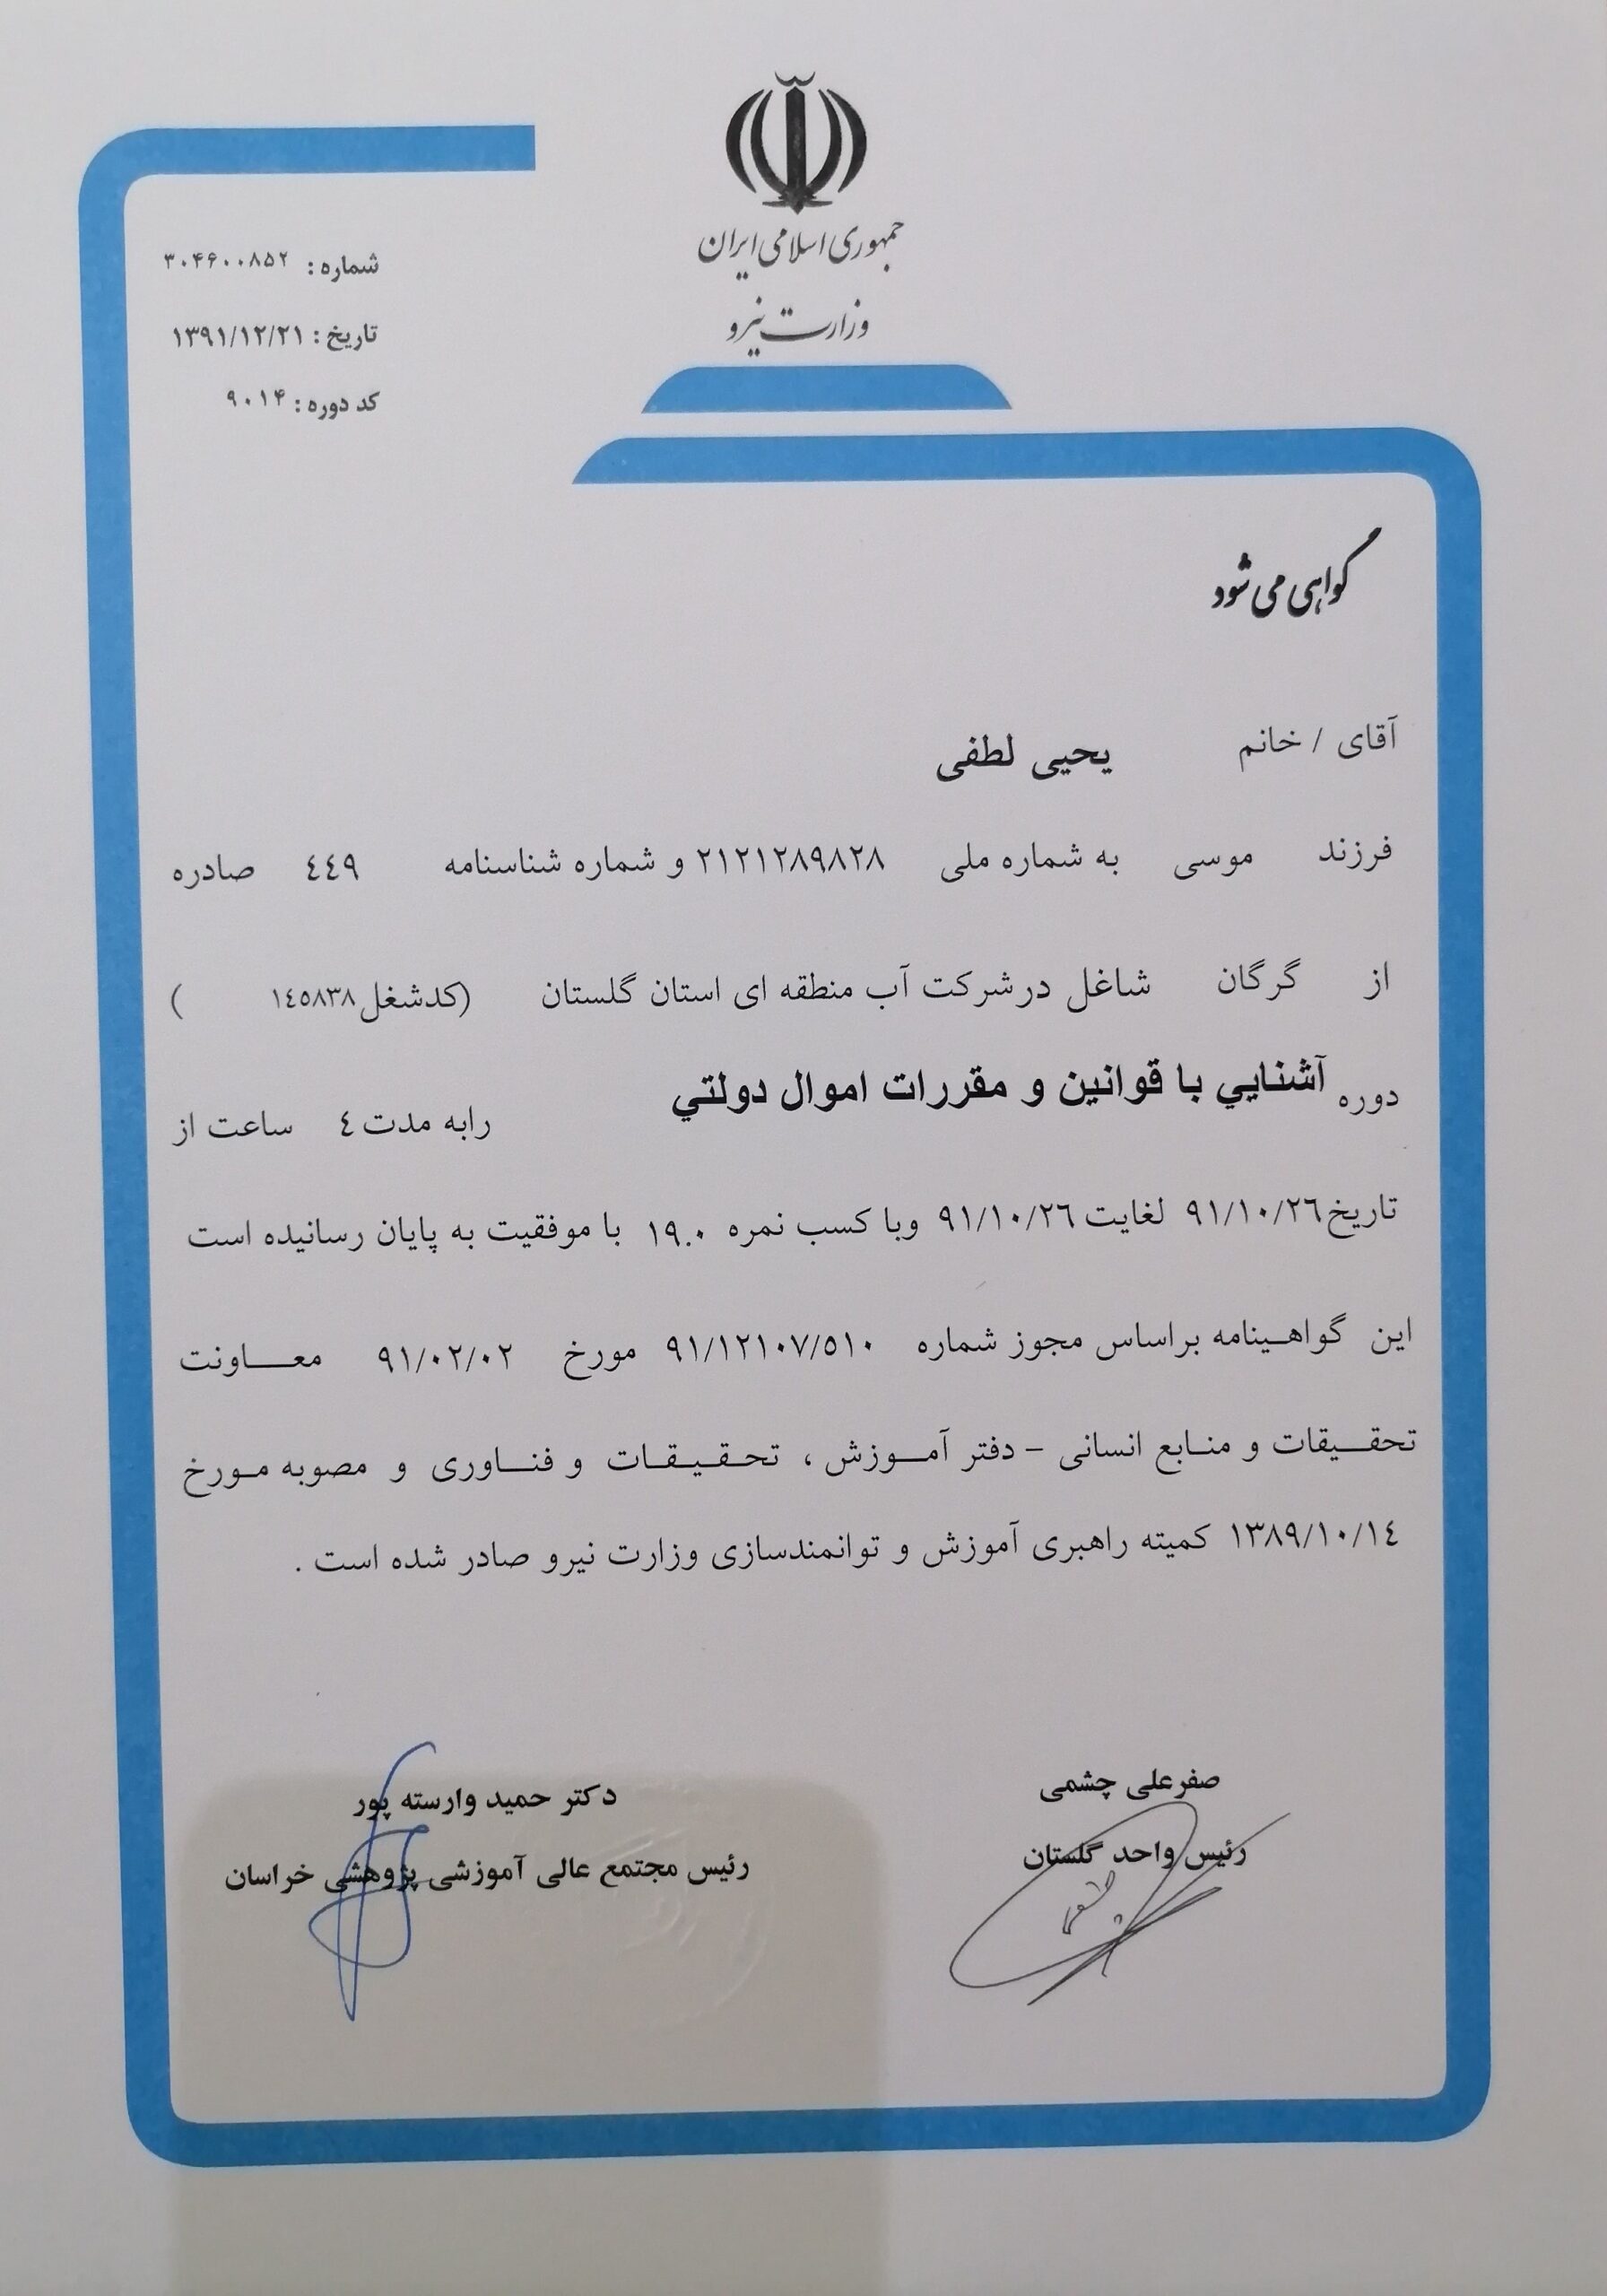 جمهوری اسلامی ایران
وزارت نیرو
شماره : ۳۰۴۶۰۰۸۵۲
تاریخ : ۱۳۹۱/۱۲/۲۱
کد دوره : ۹۰۱۴
گواهی می شود
آقای / خانم یحیی لطفی
فرزند موسی به شماره ملی ٢١٢١٢٨٩٨٢٨ و شماره شناسنامه ٤٤٩ صادره
از گرگان شاغل در شرکت آب منطقه ای استان گلستان (کدشغل ١٤٥٨٣٨ )
دوره آشنايي با قوانين و مقررات اموال دولتي رابه مدت ٤ ساعت از
تاریخ ٩١/١٠/٢٦ لغایت ٩١/١٠/٢٦ وبا کسب نمره ١٩.٠ با موفقیت به پایان رسانیده است
این گواهـینامه براساس مجوز شماره ٩١/١٢١٠٧/٥١٠ مورخ ٩١/٠٢/٠٢ معــاونت
تحقــیقات و منـابع انسانی - دفتر آمــوزش ، تحـقـیـقـات و فنــاوری و مصوبه مـورخ
١٣٨٩/١٠/١٤ کمیته راهبری آموزش و توانمندسازی وزارت نیرو صادر شده است .
صفرعلی چشمی
رئیس واحد گلستان
دکتر حمید وارسته پور
رئیس مجتمع عالی آموزشی پژوهشی خراسان